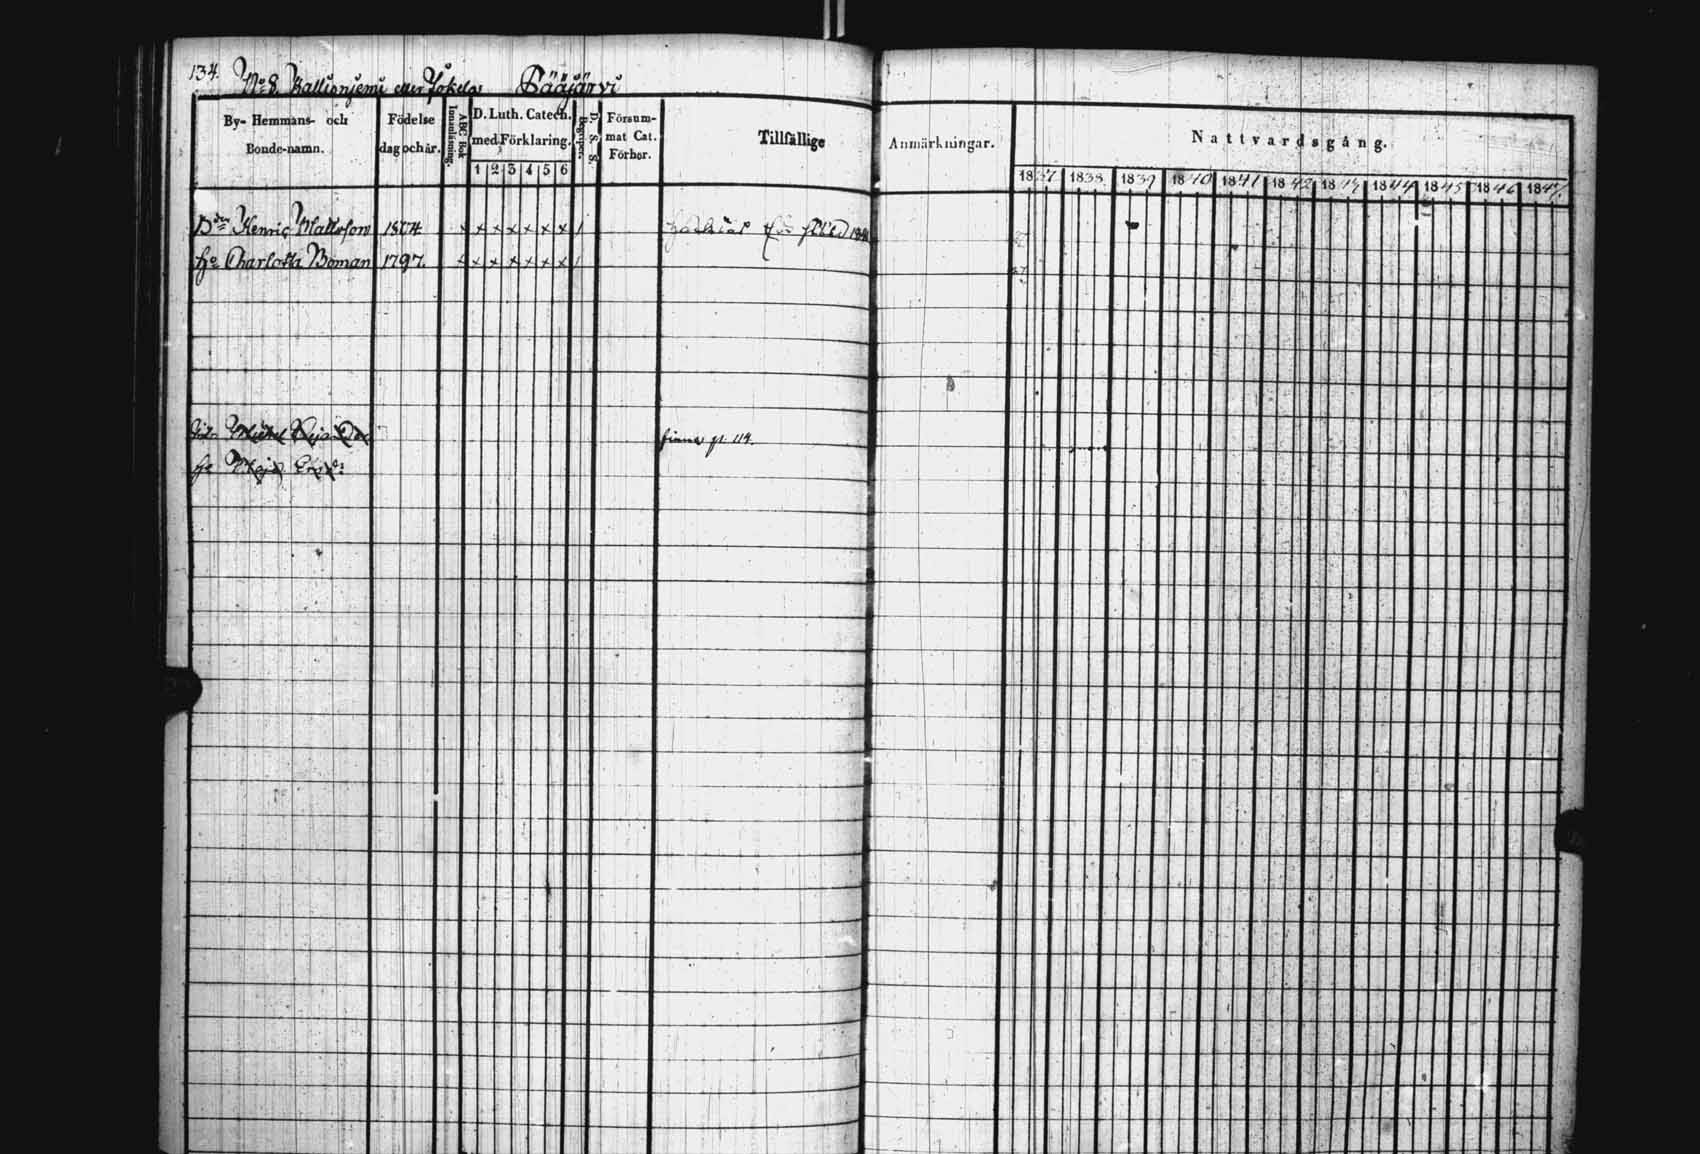 134. No 8. Kallioniemi eller Jokela Pääjärvi
By- Hemmans- och Bonde-namn.
Födelse dag och år.
ABC Bok Innanläsning.
D. Luth. Catech. med Förklaring.
1 2 3 4 5 6
D. S. S. Begrepet.
Försum-mat Cat. Förhör.
Tillfällige
Anmärkningar.
Nattvardsgång.
1837 1838 1839 1840 1841 1842 1843 1844 1845 1846 1847
Henric Mattsson 1804
Hu Charlotta Boman 1797.
Michel
finnes p. 114.
Hu Maja